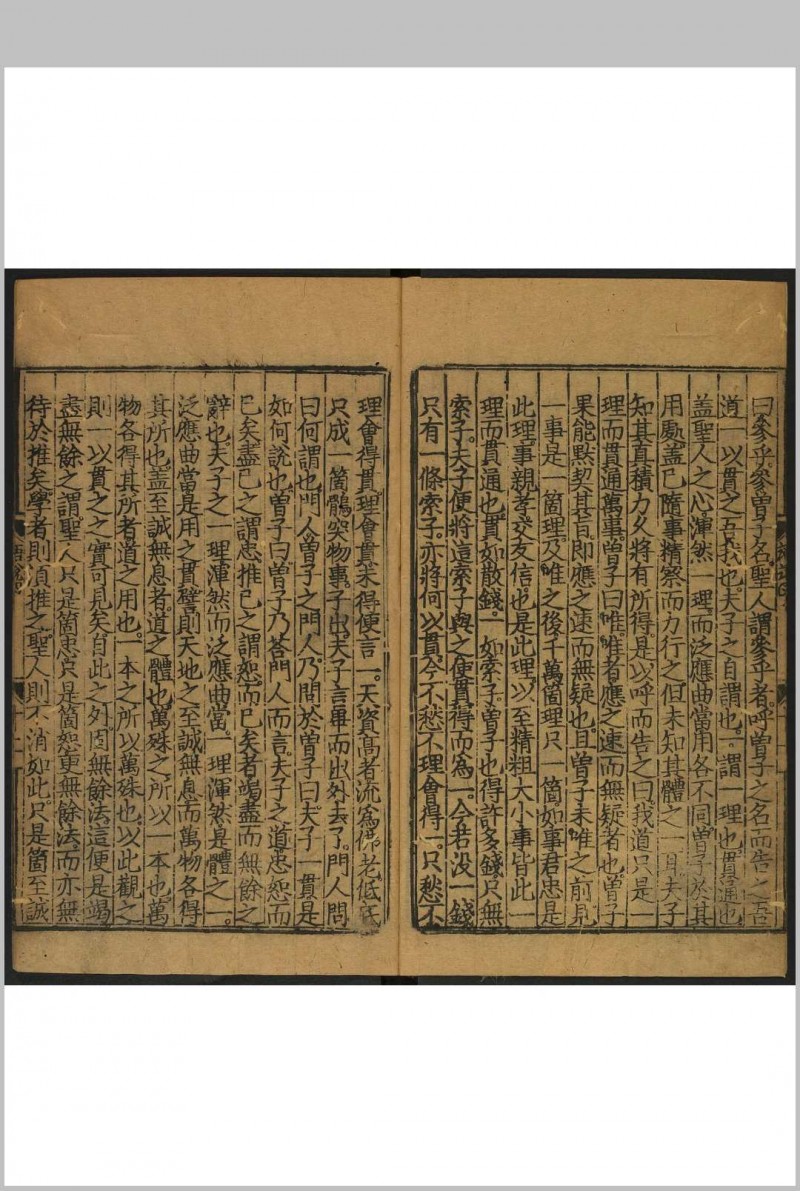 曰參乎。參曽子名。聖人謂參乎者。呼曽子之名而告之。吾
道一以貫之。吾。我也。夫子之自謂也。一。謂一理也。貫。通也。
盖聖人之心。渾然一理。而泛應曲當。用各不同。曽子於其
用處。盖已隨事精察而力行之。但未知其體之一耳。夫子
知其真積力久。將有所得。是以呼而告之曰。我道只是一
理而貫通萬事。曽子曰。唯。唯者。應之速而無疑者也。曽子
果能黙契其旨。即應之速而無疑也。且曽子未唯之前。見
一事是一箇理。及唯之後。千萬箇理只一箇。如事君忠是
此理。事親孝交友信也是此理。以至精粗大小事。皆此一
理而貫通也。貫如散錢。一如索子。曽子也得許多錢。只無
索子。夫子便將這索子與之。便貫得而爲一。今若没一錢
只有一條索子。亦將何以貫。今不愁不理會得一。只愁不
理會得貫。理會貫未得便言一。天資髙者流爲佛老。低
只成一箇鶻突物事。子出夫子言畢而出外去了。門人問
曰何謂也。門人曽子之門人。乃問於曽子曰。夫子一貫是
如何說也。曽子曰。曽子乃荅門人而言。夫子之道忠恕而
已矣。盡已之謂忠。推已之謂恕。而已矣者。竭盡而無餘之
辭也。夫子之一理渾然而泛應曲當。一理渾然是體之一。
泛應曲當是用之貫。譬則天地之至誠無息而萬物各得
其所也。盖至誠無息者。道之體也。萬殊之所以一本也。萬
物各得其所者。道之用也。一本之所以萬殊也。以此觀之
則一以貫之之實可見矣。自此之外。固無餘法。這便是竭
盡無餘之謂。聖人只是箇忠。只是箇恕。更無餘法。而亦無
待於推矣。學者則須推之。聖人則不消如此。只是箇至誠